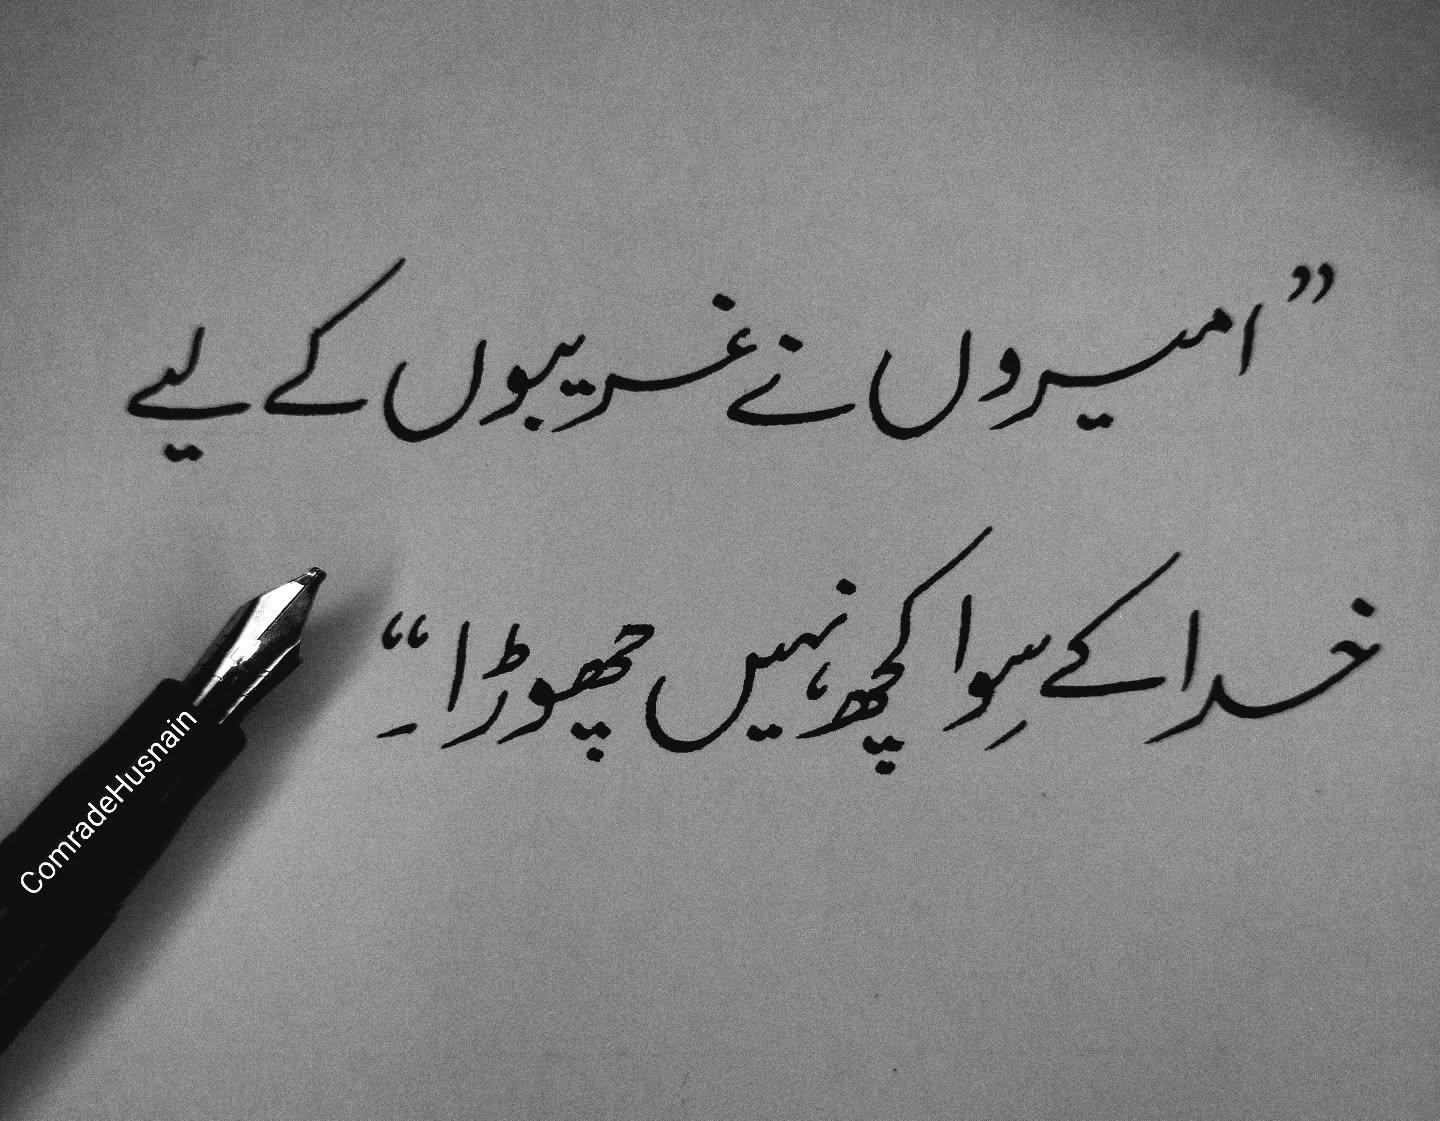 ”امیروں نے غریبوں کے لیے
خدا کے سِوا کچھ نہیں چھوڑا۔“
ComradeHusnain